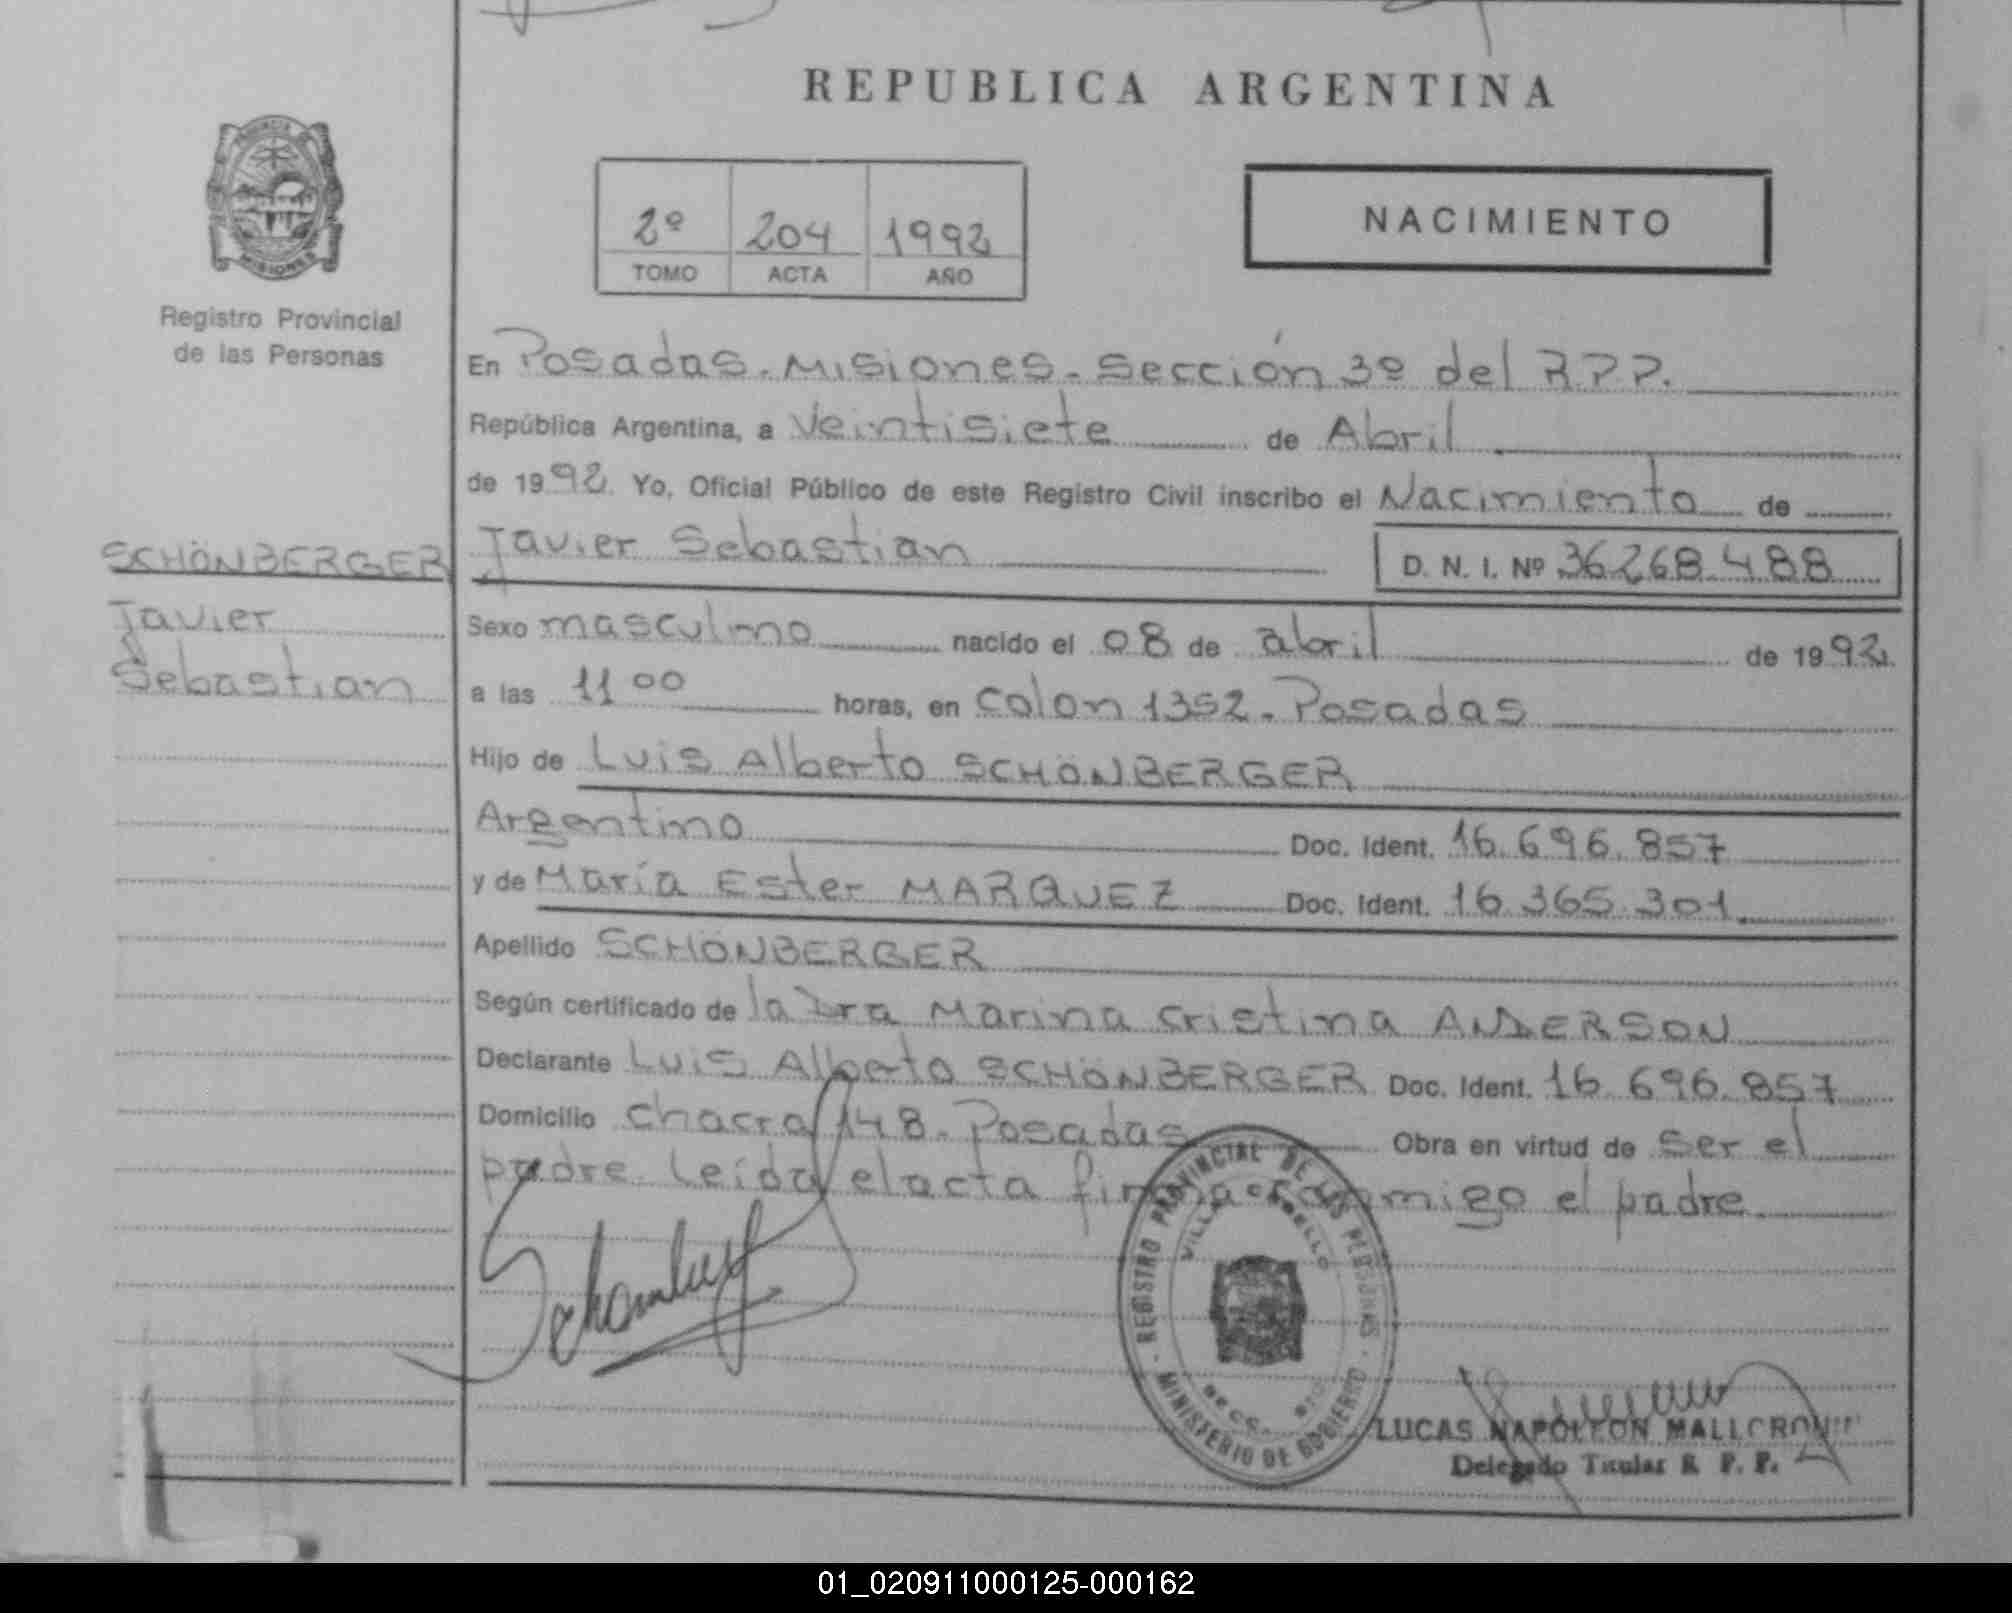 REPUBLICA ARGENTINA
PROVINCIA
MISIONES
Registro Provincial
de las Personas
2º 204 1992
TOMO ACTA AÑO
NACIMIENTO
En Posadas. Misiones. Sección 3º del R.P.P.
República Argentina, a Veintisiete de Abril
de 1992. Yo, Oficial Público de este Registro Civil inscribo el Nacimiento de
SCHÖNBERGER
Javier
Sebastian
Javier Sebastian D. N. I. Nº 36.268.488
Sexo masculino nacido el 08 de abril de 1992.
a las 11 00 horas, en Colon 1352. Posadas
Hijo de Luis Alberto SCHÖNBERGER
Argentino Doc. Ident. 16.696.857
y de María Ester MARQUEZ Doc. Ident. 16.365.301.
Apellido SCHÖNBERGER
Según certificado de la Dra Marina Cristina ANDERSON
Declarante Luis Alberto SCHÖNBERGER Doc. Ident. 16.696.857
Domicilio Chacra 148. Posadas Obra en virtud de Ser el
padre. Leída el acta firma conmigo el padre
REGISTRO PROVINCIAL DE LAS PERSONAS
MINISTERIO DE GOBIERNO
LUCAS NAPOLEON
Delegado Titular R. P. P.
01_020911000125-000162